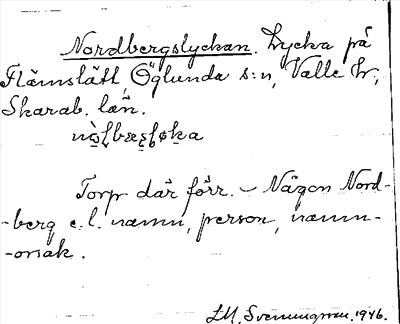 Nordbergslyckan. Lycka på
Flämslätt, Öglunda s:n, Valle hd,
Skarab. län.
Torp där förr. – Någon Nord-
-berg e. l. namn, person, namn-
-orsak.
LM. Svenungsson. 1946.